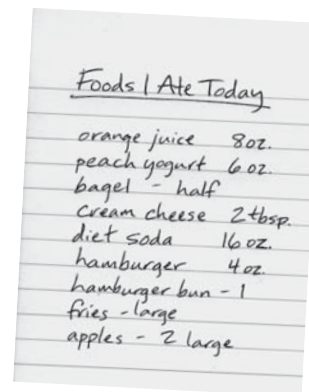 Foods I Ate Today
orange juice 8oz.
peach yogurt 6 oz.
bagel - half
cream cheese 2 tbsp.
diet soda 16 oz.
hamburger 4 oz.
hamburger bun - 1
fries - large
apples - 2 large